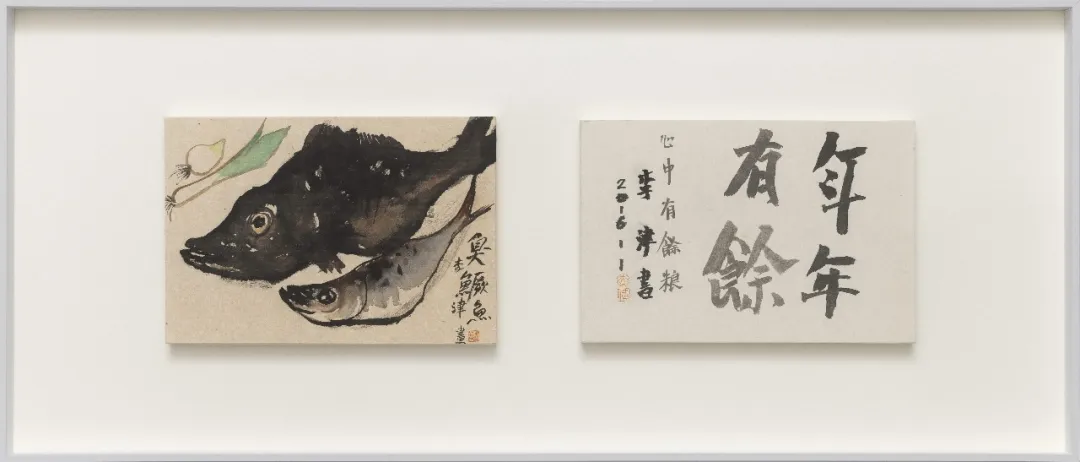 臭鱖魚
李津畫
年年
有餘
心中有餘粮
李津書
2016 1 1